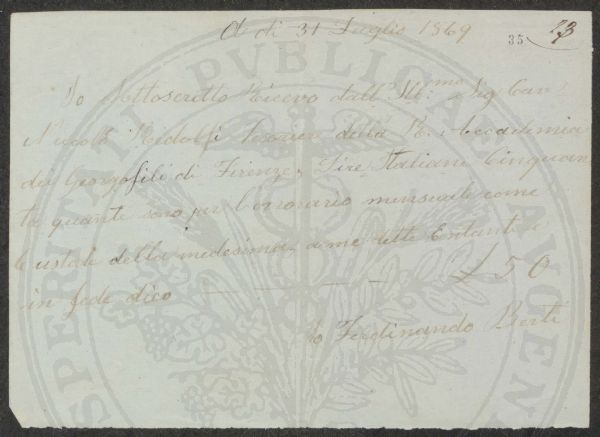 A dì 31 Luglio 1869
35 23
Io Sottoscritto Ricevo dall' Ill:mo Sig Cav
Niccolò Ridolfi Tesoriere della R. Accademia
dei Georgofili di Firenze, Lire Italiane Cinquan
ta quante sono per l'onorario mensuale come
Custode della medesima, a me dette Contanti
in fede dico £ 50
Io Ferdinando Berti
PROSPERITATI PUBLICAE AUGENDAE